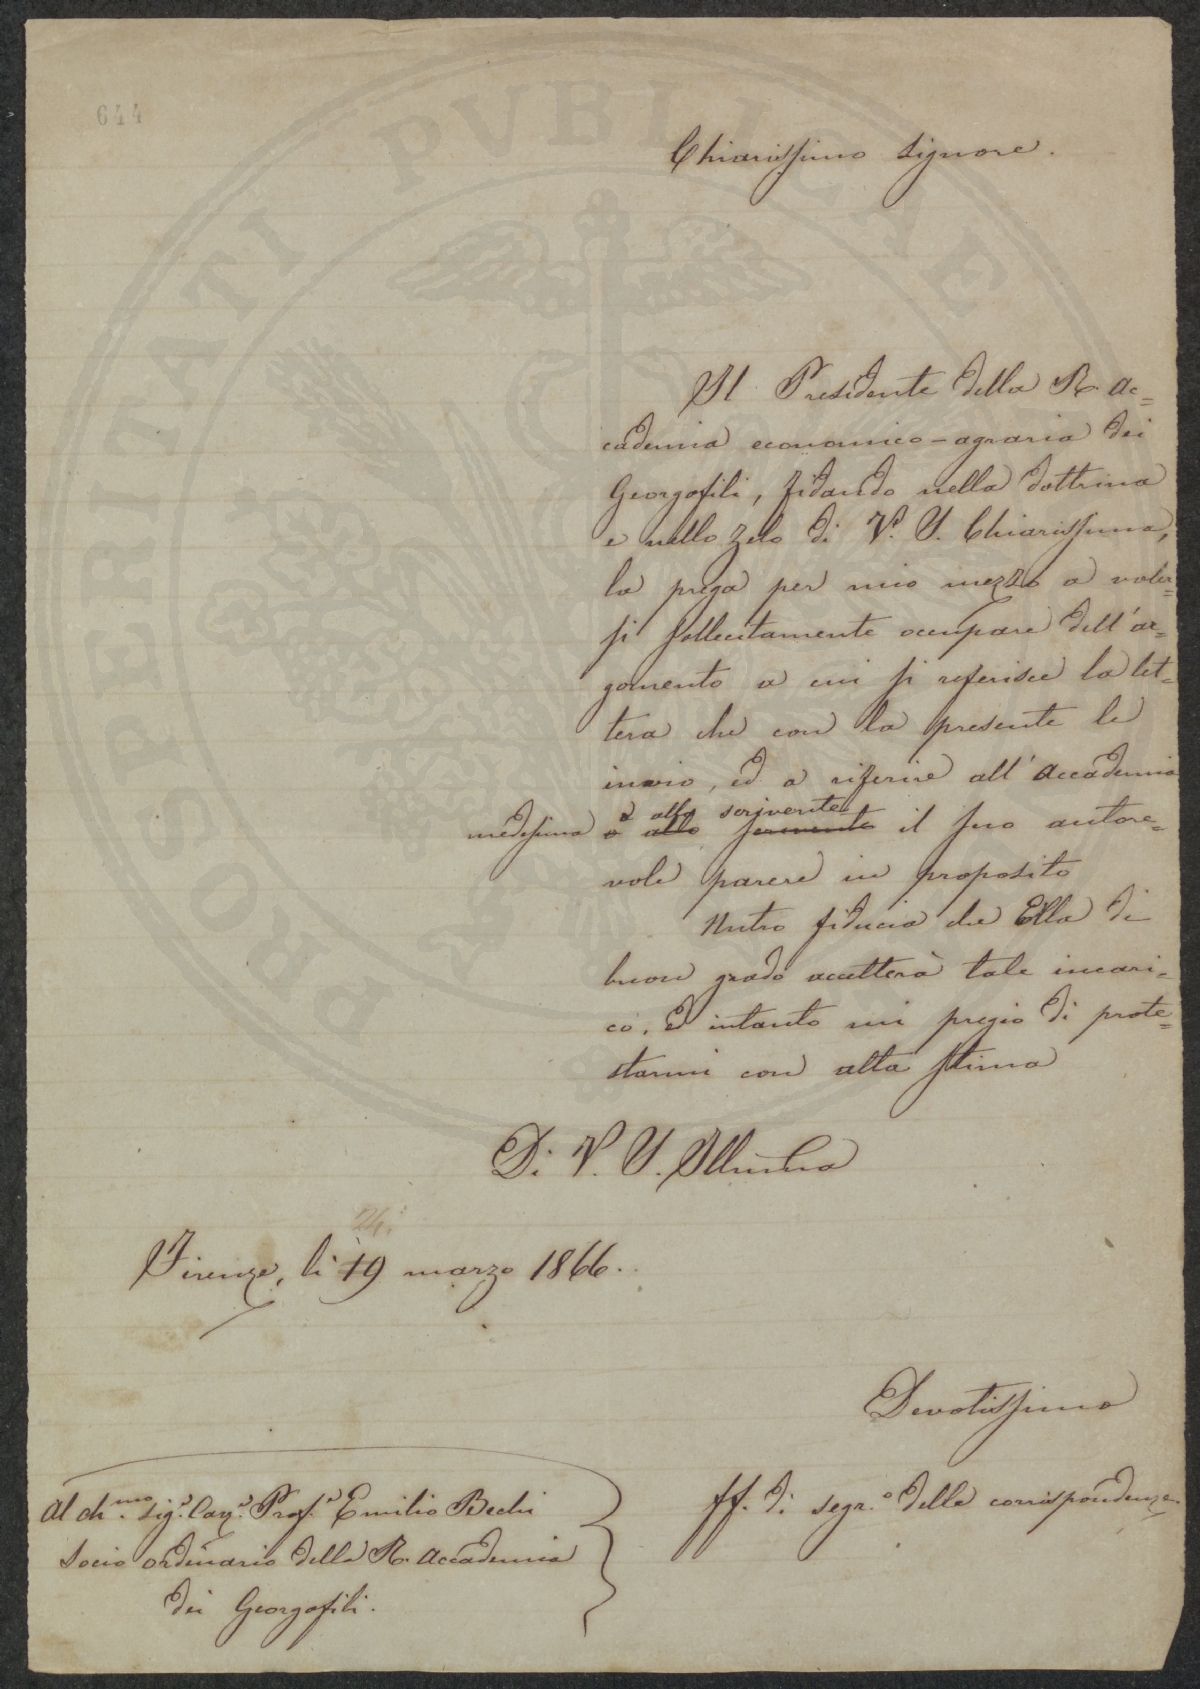 644
Chiarissimo Signore.
Il Presidente della R. Ac=
cademia economico-agraria dei
Georgofili, fidando nella dottrina
e nello zelo di V. S. Chiarissima,
la prega per mio mezzo a voler=
si sollecitamente occupare dell'ar=
gomento a cui si referisce la let=
tera che con la presente le
invio, ed a riferire all'Accademia
o allo scrivente
medesima o allo scrivente il suo autore=
vole parere in proposito
Nutro fiducia che Ella di
buon grado accetterà tale incari=
co, ed intanto mi pregio di prote=
starmi con alta stima
Di V. S. Illma
24.
Firenze, li 19 marzo 1866.
Devotissimo
ff. di segr.o delle corrispondenze
Al ch.mo sig.r Cav.r Prof.r Emilio Bechi
Socio ordinario della R. Accademia
dei Georgofili.
PROSPERITATI PVBLICAE